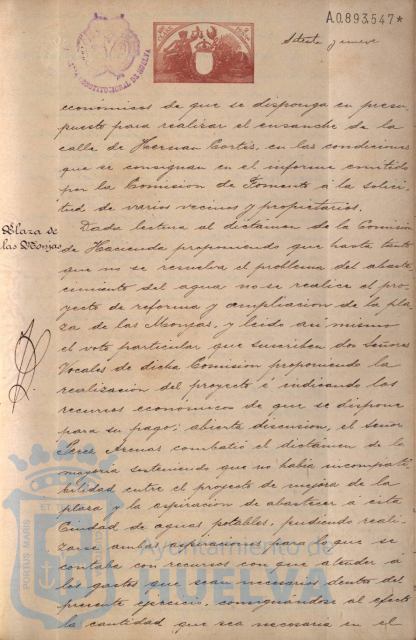 A.0.893.547*
Setenta y nueve
CONSTITUCIONAL DE HUELVA
económicos de que se disponga en presu-
puesto para realizar el ensanche de la
calle de Hernan Cortés, en las condiciones
que se consignan en el informe emitido
por la Comision de Fomento á la solici-
tud de varios vecinos y propietarios.
Plaza de
las Monjas
Dada lectura al dictámen de la Comision
de Hacienda proponiendo que hasta tanto
que no se resuelva el problema del abaste
cimiento del agua no se realice el pro-
yecto de reforma y ampliacion de la pla
za de las Monjas, y leido asi mismo
el voto particular que suscriben dos Señores
Vocales de dicha Comision proponiendo la
realizacion del proyecto é indicando los
recursos económicos de que se dispone
para su pago; abierta discusion, el señor
Perez Arenas combatió el dictámen de la
mayoria sosteniendo que no habia incompati
bilidad entre el proyecto de mejora de la
plaza y la aspiracion de abastecer á esta
Ciudad de aguas potables, pudiendo reali-
zarse ambas aspiraciones para lo que se
contaba con recursos con que atender á
los gastos que sean necesarios dentro del
presente ejercicio, consignandose al efecto
la cantidad que sea necesaria en el
PORTUS MARIS ET
Ayuntamiento de
HUELVA